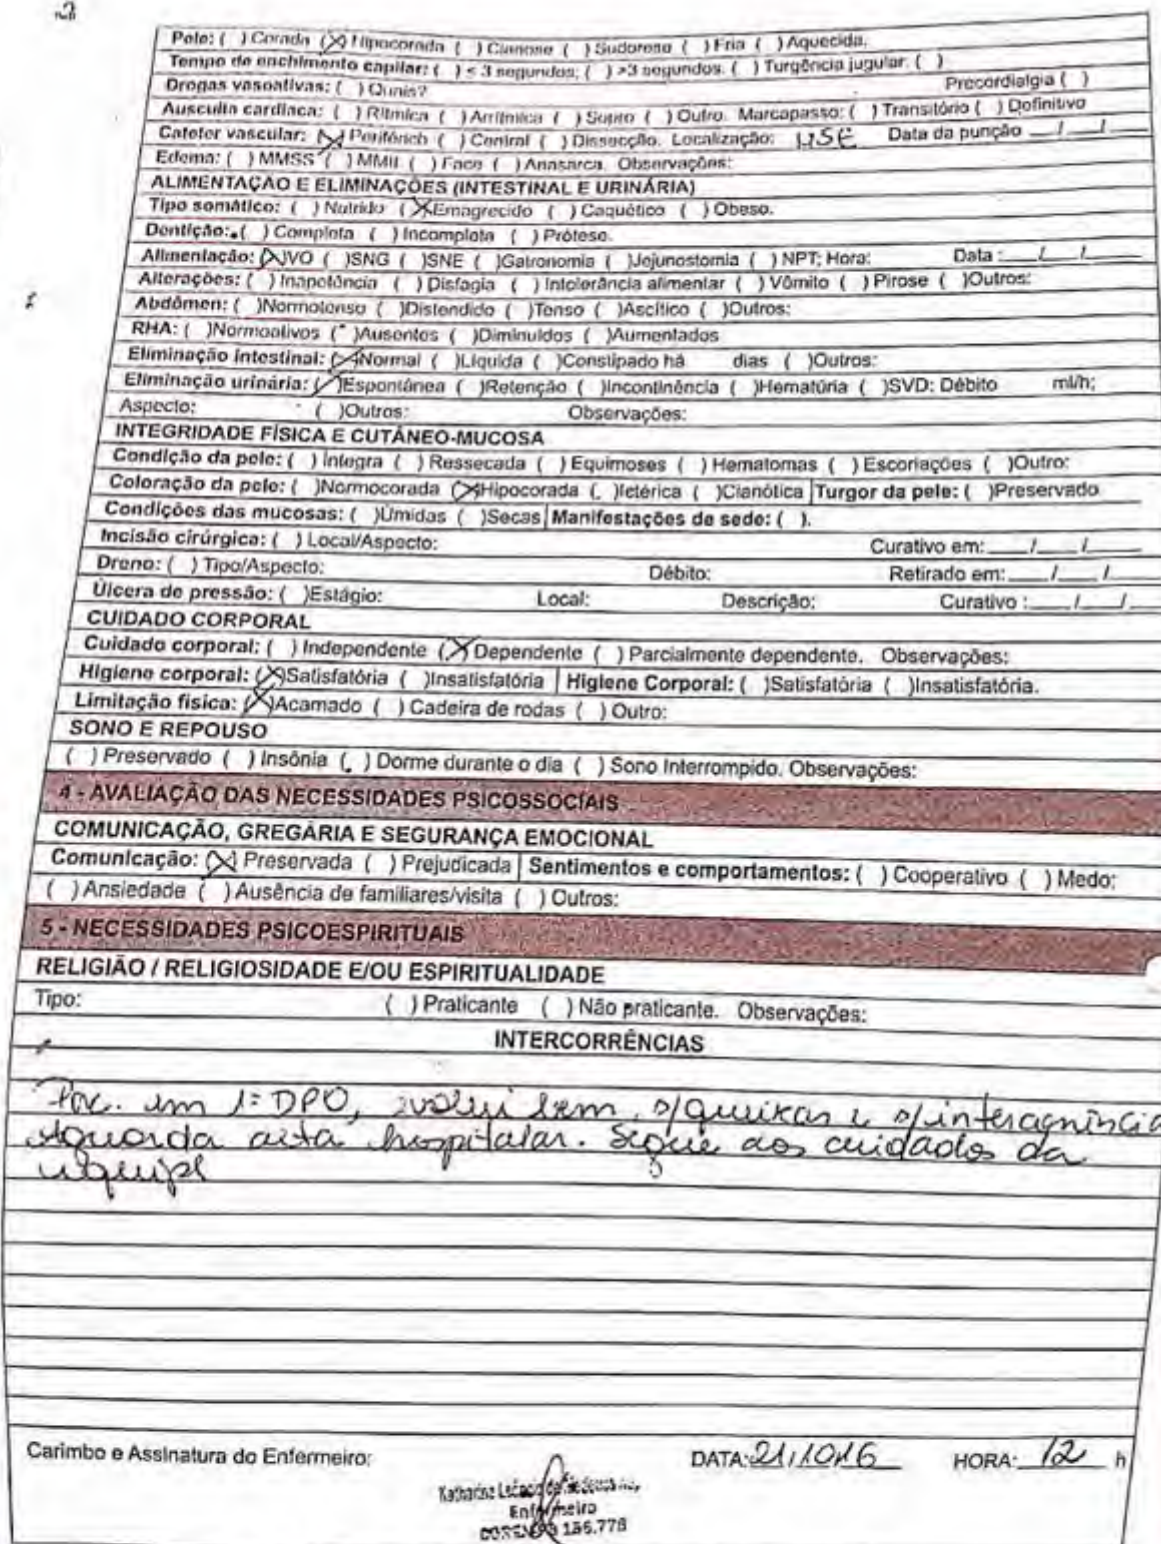 Pele: ( ) Corada (X) Hipocorada ( ) Cianose ( ) Sudorese ( ) Fria ( ) Aquecida.
Tempo de enchimento capilar: ( ) ≤ 3 segundos; ( ) >3 segundos. ( ) Turgência jugular. ( )
Drogas vasoativas: ( ) Quais? Precordialgia ( )
Ausculta cardíaca: ( ) Rítmica ( ) Arrítmica ( ) Sopro ( ) Outro. Marcapasso: ( ) Transitório ( ) Definitivo
Cateter vascular: (X) Periférico ( ) Central ( ) Dissecção. Localização: MSE Data da punção __/__/__
Edema: ( ) MMSS ( ) MMII ( ) Face ( ) Anasarca. Observações:
ALIMENTAÇÃO E ELIMINAÇÕES (INTESTINAL E URINÁRIA)
Tipo somático: ( ) Nutrido (X) Emagrecido ( ) Caquético ( ) Obeso.
Dentição: ( ) Completa ( ) Incompleta ( ) Prótese.
Alimentação: (X)VO ( )SNG ( )SNE ( )Gatronomia ( )Jejunostomia ( ) NPT; Hora: Data: __/__/__
Alterações: ( ) Inapetência ( ) Disfagia ( ) Intolerância alimentar ( ) Vômito ( ) Pirose ( )Outros:
Abdômen: ( )Normotenso ( )Distendido ( )Tenso ( )Ascítico ( )Outros:
RHA: ( )Normoativos ( )Ausentes ( )Diminuídos ( )Aumentados
Eliminação intestinal: (X)Normal ( )Líquida ( )Constipado há dias ( )Outros:
Eliminação urinária: (/)Espontânea ( )Retenção ( )Incontinência ( )Hematúria ( )SVD: Débito ml/h;
Aspecto: ( )Outros: Observações:
INTEGRIDADE FÍSICA E CUTÂNEO-MUCOSA
Condição da pele: ( ) Íntegra ( ) Ressecada ( ) Equimoses ( ) Hematomas ( ) Escoriações ( )Outro:
Coloração da pele: ( )Normocorada (X)Hipocorada ( )Ictérica ( )Cianótica Turgor da pele: ( )Preservado
Condições das mucosas: ( )Úmidas ( )Secas Manifestações de sede: ( ).
Incisão cirúrgica: ( ) Local/Aspecto: Curativo em: __/__/__
Dreno: ( ) Tipo/Aspecto: Débito: Retirado em: __/__/__
Úlcera de pressão: ( )Estágio: Local: Descrição: Curativo : __/__/__
CUIDADO CORPORAL
Cuidado corporal: ( ) Independente (X) Dependente ( ) Parcialmente dependente. Observações:
Higiene corporal: (X)Satisfatória ( )Insatisfatória Higiene Corporal: ( )Satisfatória ( )Insatisfatória.
Limitação física: (X)Acamado ( ) Cadeira de rodas ( ) Outro:
SONO E REPOUSO
( ) Preservado ( ) Insônia ( ) Dorme durante o dia ( ) Sono Interrompido. Observações:
4 - AVALIAÇÃO DAS NECESSIDADES PSICOSSOCIAIS
COMUNICAÇÃO, GREGÁRIA E SEGURANÇA EMOCIONAL
Comunicação: (X) Preservada ( ) Prejudicada Sentimentos e comportamentos: ( ) Cooperativo ( ) Medo;
( ) Ansiedade ( ) Ausência de familiares/visita ( ) Outros:
5 - NECESSIDADES PSICOESPIRITUAIS
RELIGIÃO / RELIGIOSIDADE E/OU ESPIRITUALIDADE
Tipo: ( ) Praticante ( ) Não praticante. Observações:
INTERCORRÊNCIAS
Pac. em 1º DPO, evolui bem, s/queixas e s/
Aguarda alta hospitalar. Segue aos cuidados da
equipe
Carimbo e Assinatura do Enfermeiro: DATA: 21/10/16 HORA: 12 h
Enfermeiro
156.778